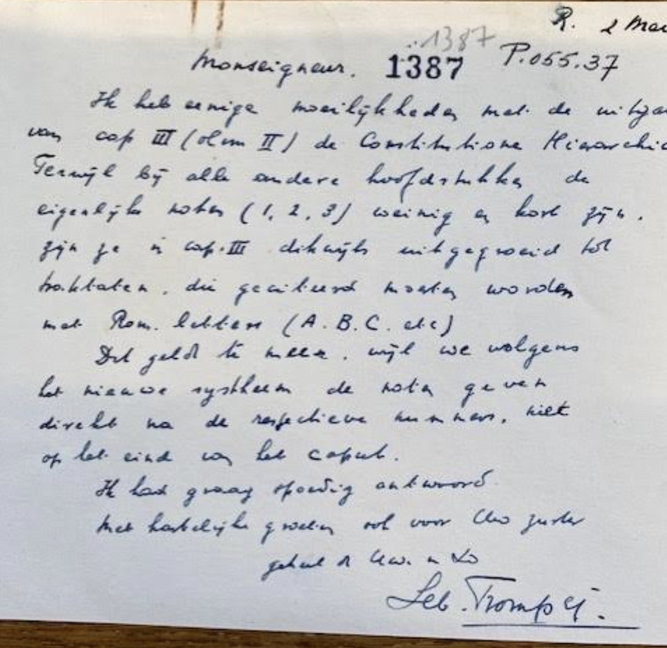 R. 2 Mar
1387
Monseigneur. 1387 P.055.37
Ik heb eenige moeilijkheden met de uitga
van cap III (olim II) de Constitutione Hierarchic
Terwijl bij alle andere hoofdstukken de
eigenlijke noten (1, 2, 3) weinig en kort zijn.
zijn ze in cap. III dikwijls uitgegroeid tot
traktaten, die geciteerd moeten worden
met Rom. letters (A. B. C. etc)
Dit geldt te meer, wijl we volgens
het nieuwe systheem de noten geven
direkt na de respectieve nummers, niet
op het eind van het caput.
Ik had graag spoedig antwoord.
Met hartelijke groeten ook voor Uw zuster
geheel de Uwe in Xo
Seb. Tromp sj.